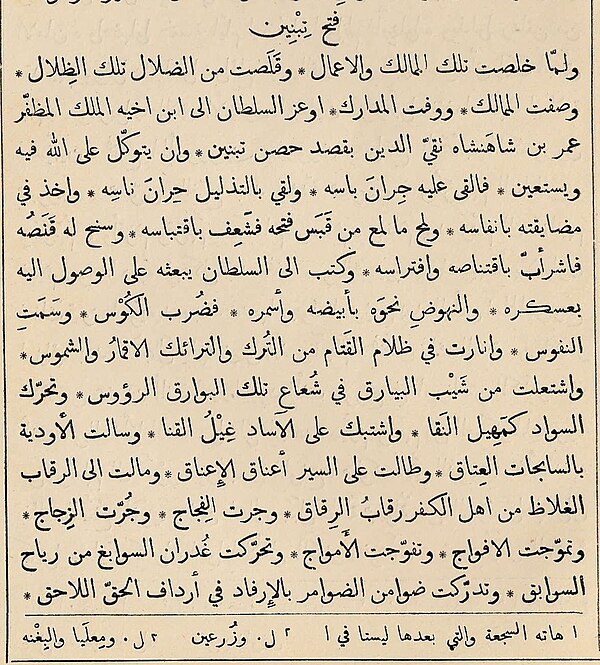 فتح تِبْنِين
ولمّا خلصت تلك الممالك والاعمال * وقَلَصت من الضلال تلك الظِلال *
وصفت الممالك * ووفت المدارك * اوعز السلطان الى ابن اخيه الملك المظفّر
عمر بن شاهَنشاه تقيّ الدين بقصد حصن تبنين * وان يتوكّل على الله فيه
ويستعين * فالقى عليه جِرانَ باسه * ولقي بالتذليل حِرانَ ناسِه * واخذ في
مضايقته بانفاسه * ولمح ما لمع من قَبَس فتحه فشَعِف باقتباسه * وسنح له قَنَصُه
فاشرأبّ باقتناصه وافتراسه * وكتب الى السلطان يبعثه على الوصول اليه
بعسكره * والنهوضِ نحوَه بأبيضه وأسمره * فضُرب الكُوْس * وسَمَتِ
النفوس * وانارت في ظلام القَتام من التُرك والترائك الاقمارُ والشموس *
واشتعلت من شَيْب البيارق في شُعاع تلك البوارق الرؤوس * وتحرّك
السواد كمَهِيل النَقا * واشتبك على الآساد غِيْلُ القنا * وسالت الأودية
بالسابحات العِتاق * وطالت على السير أعناق الإِعناق * ومالت الى الرقاب
الغلاظ من اهل الكفر رقابُ الرِقاق * وجرت الفِجاج * وجُرّت الزِجاج *
وتموّجت الافواج * وتفوّجت الأمواج * وتحرّكت غُدران السوابغ من رياح
السوابق * وتدرّكت ضوامن الضوامر بالإِرفاد في أرداف الحقّ اللاحق *
١ هاته السجعة والتي بعدها ليستا في ا ٢ ل. وزُرعين ٣ ل. ومعلَيا والبِغْنه